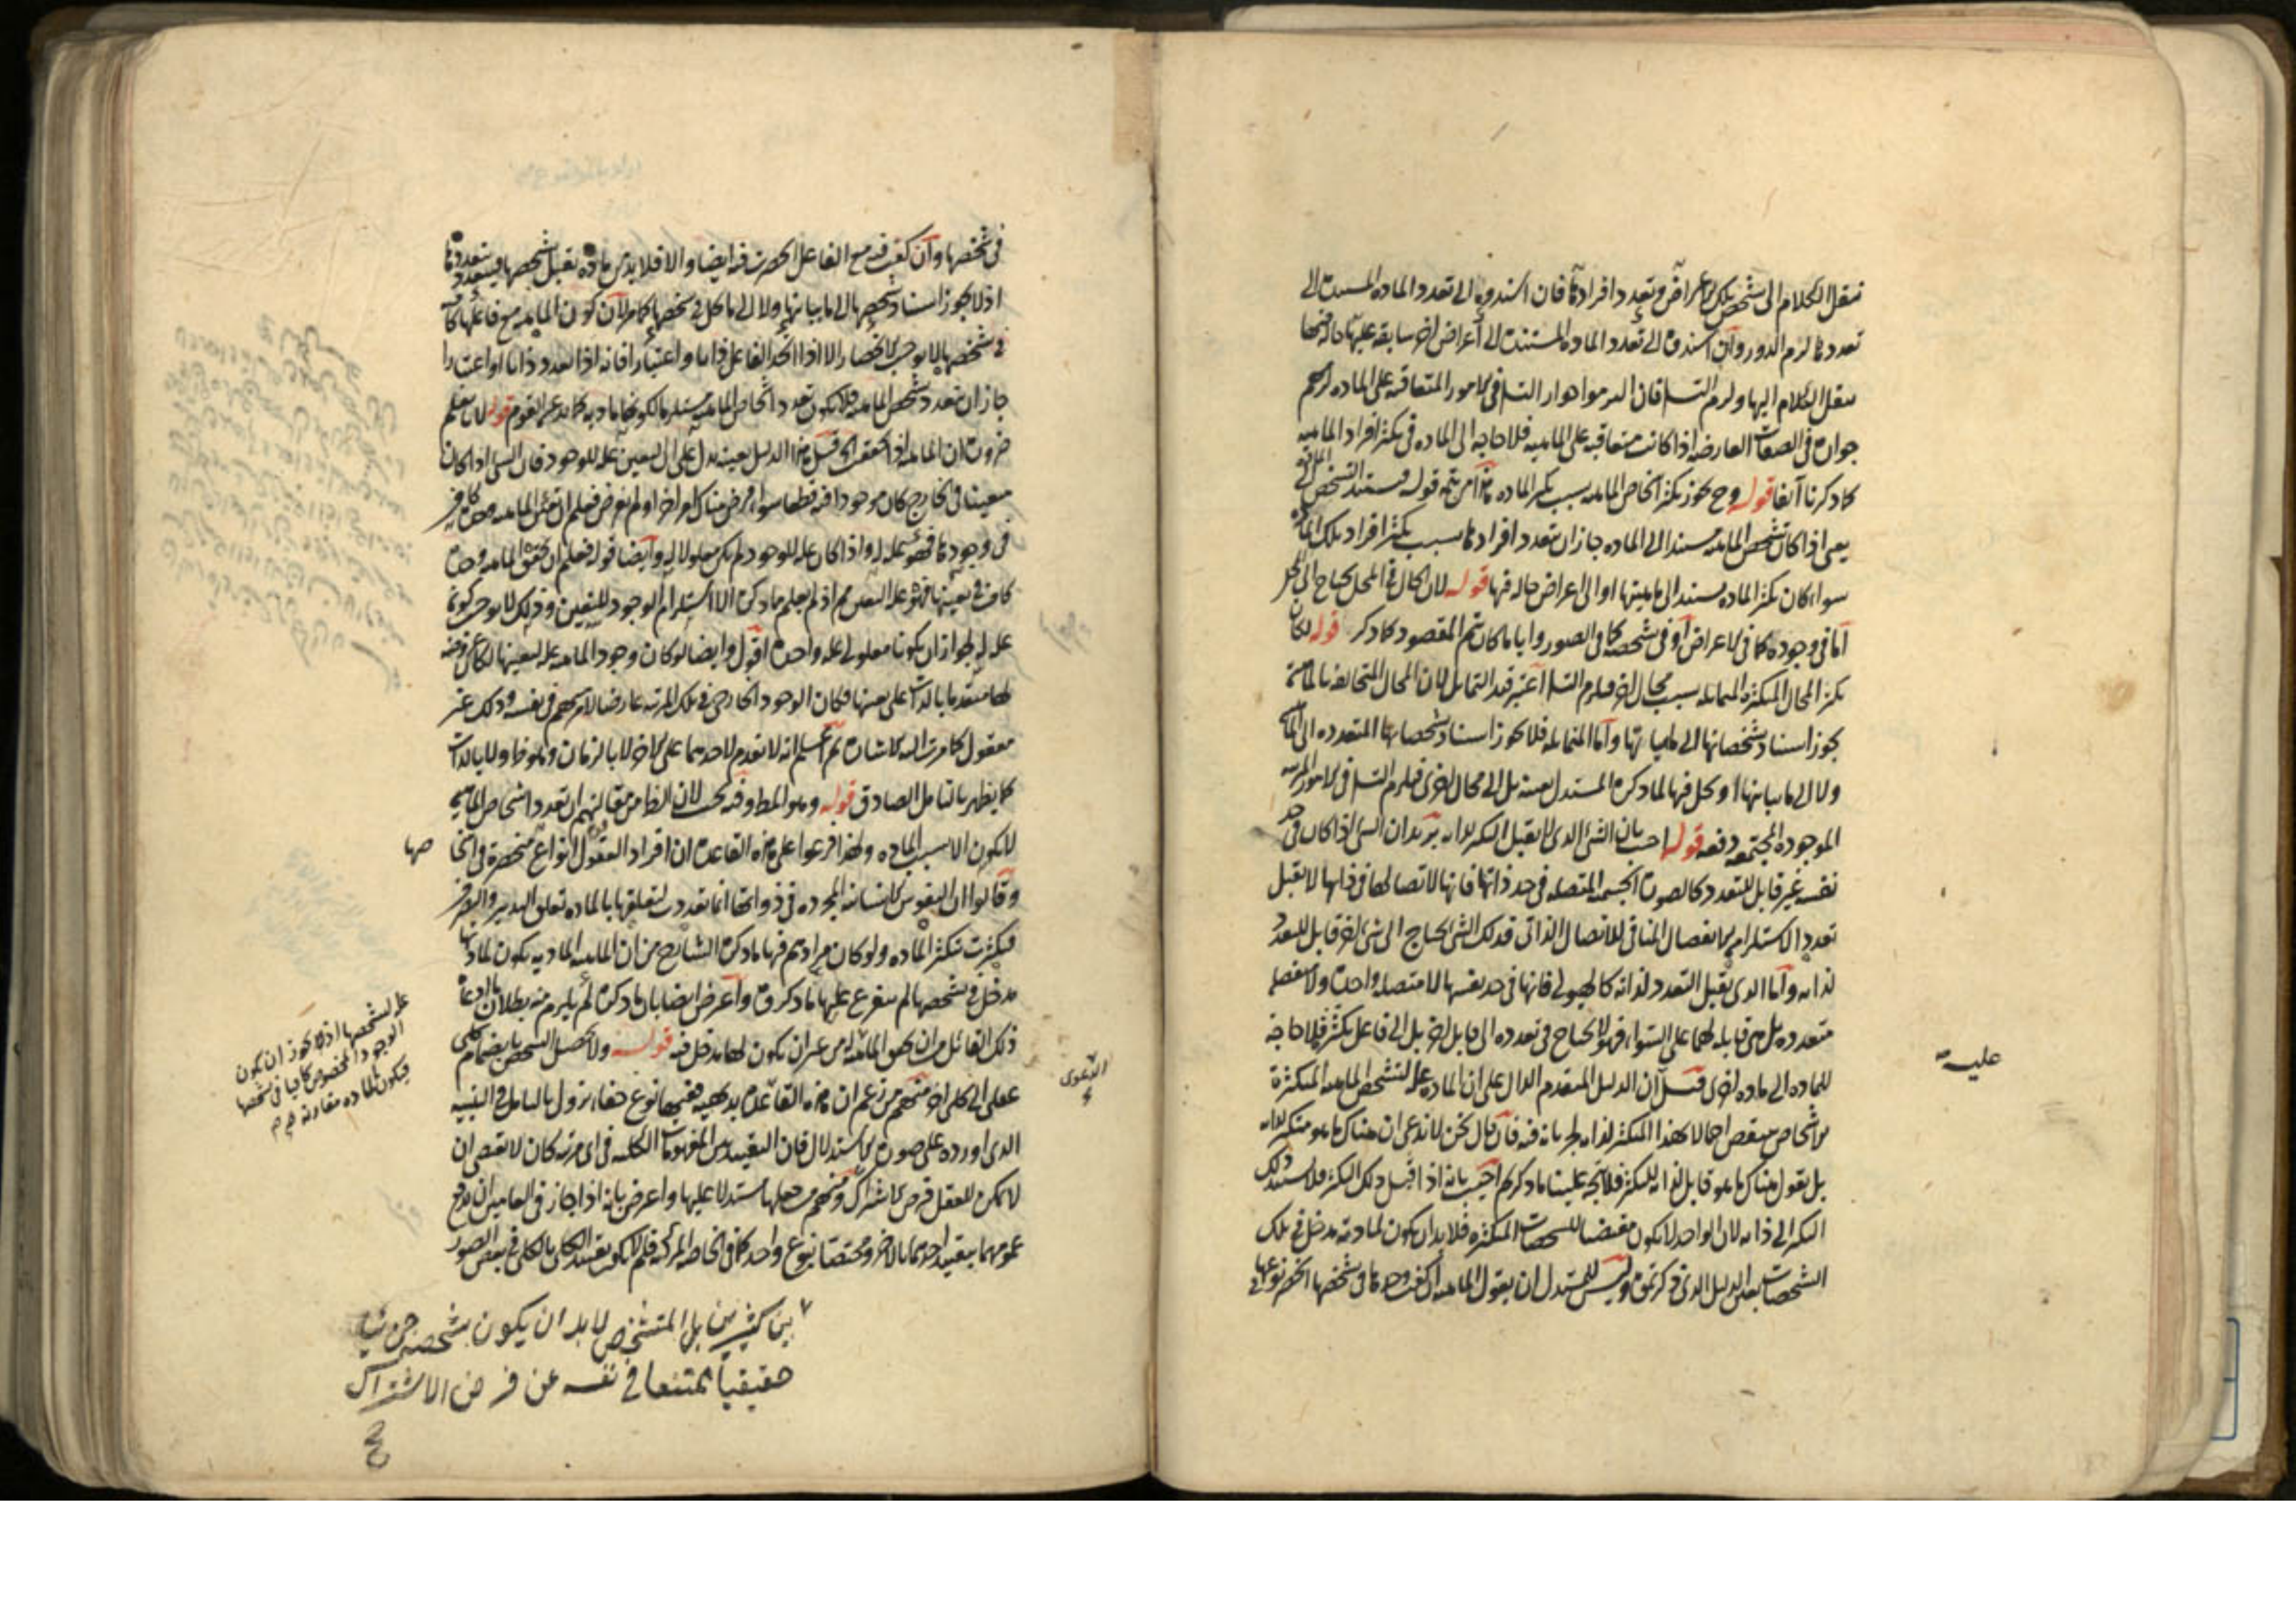 ننقل الكلام الى تشخص تلك الاعراض وتعدد افرادها فان اسندوه الى تعدد الماده المستند الى
تعددها لزم الدور وان اسندوه الى تعدد الماده المستند الى أعراض اخر سابقه عليها حاله فيها
ننقل الكلام اليها ولزم التسلسل فان التزموا جواز التسلسل فى الامور المتعاقبه على الماده لزمهم
جوازه فى الصفات العارضه اذا كانت متعاقبه على الماهيه فلا حاجه الى الماده فى تكثر افراد الماهيه
كما ذكرنا آنفا قوله وح يجوز تكثر اشخاص الماهيه بسبب تكثر الماده هذا من تتمه قوله ويستند التشخص الى الماده
يعنى اذا كان تشخص الماهيه مستندا الى الماده جاز ان تتعدد افرادها بسبب تكثر افراد تلك الماده
سواء كان تكثر الماده مستندا الى ماهيتها او الى اعراض حاله فيها قوله لان الحال فى المحل يحتاج الى المحل
أما فى وجوده كما فى الاعراض أو فى تشخصه كما فى الصور وايا ما كان يتم المقصود كما ذكر قوله لكان
تكثر المحال المتكثره المتماثله بسبب محال اخر فيلزم التسلسل اعتبر قيد التماثل لان المحال المتخالفه بالماهيه
يجوز اسناد تشخصاتها الى ماهياتها وأما المتماثله فلا يجوز اسناد تشخصاتها المتعدده الى الماهيه
ولا الى ما يباينها او يحل فيها لما ذكره المستدل بعينه بل الى محال اخرى فيلزم التسلسل فى الامور المرتبه
الموجوده المجتمعه دفعه قوله اجيب بان الشئ الذى لا يقبل التكثر لذاته يريد ان الشئ اذا كان فى حد
نفسه غير قابل للتعدد كالصوره الجسميه المتصله فى حد ذاتها فانها لاتصالها فى ذاتها لا تقبل
تعددا لاستلزامه الانفصال المنافى للاتصال الذاتى فذلك الشئ يحتاج الى شئ اخر قابل للتعدد
لذاته وأما الذى يقبل التعدد لذاته كالهيولى فانها فى حد نفسها لا متصله واحده ولا منفصله
متعدده بل هى قابله لهما على السواء فهو لا يحتاج فى تعدده الى قابل اخر بل الى فاعل يكثره فلا حاجه
للماده الى ماده اخرى قيل ان الدليل المتقدم الدال على ان الماده علة لتشخص الماهيه المتكثرة
الاشخاص منتقض اجمالا بهذا المتكثر لذاته لجريانه فيه فان قال نحن لا ندعى ان هناك ما هو متكثر لذاته
بل نقول هناك ما هو قابل لذاته للتكثر فلا يتجه علينا ما ذكرتم اجيب بانه اذا قبل ذلك التكثر فلا يستند ذلك
التكثر الى ذاته لان الواحد لا يكون مقتضيا للتشخصات المتكثره فلا بد ان يكون لمادته مدخل فى تلك
التشخصات بعين الدليل الذى ذكرتموه وليس للمستدل ان يقول الماهيه ان كفت وحدها فى تشخصها انحصر نوعها
عليته
فى تشخصها وان كفت فيه مع الفاعل انحصرت فيه ايضا والا فلا بد من ماده تقبل تشخصها فيتعدد بتعددها
اذ لا يجوز اسناد تشخصها الى ما يباينها ولا الى ما يحل فى تشخصها كما مر لان كون الماهيه مع فاعلها كافيا
فى تشخصها لا يوجب الانحصار الا اذا اتحد الفاعل ذاتا واعتبارا فانه اذا تعدد ذاتا او اعتبارا
جاز ان يتعدد تشخص الماهيه فلا يكون تعدد اشخاص الماهيه مستلزما لكونها ماديه كما يدعيه القوم قوله لانا نعلم
ضروره ان الماهيه اذا تحققت الخ قيل هذا الدليل بعينه يدل على ان التعين علة للوجود فان الشئ اذا كان
معينا فى الخارج كان موجودا فيه قطعا سواء فرض هناك امر اخر او لم يفرض فعلم ان تعين الماهيه وحده كاف
فى وجودها فهو علة له واذا كان علة للوجود لم يكن معلولا له وأيضا قوله فعلم ان تحقق الماهيه وحده
كاف فى تعينها فهو علة التعين مم اذ لم يعلم مما ذكره الا استلزام الوجود للتعين وذلك لا يوجب كونه
علة له لجواز ان يكونا معلولى علة واحده اقول وايضا لو كان وجود الماهيه علة لتعينها لكان عروضه
لها متقدما بالذات على تعينها فكان الوجود الخارجى فى تلك المرتبه عارضا لامر مبهم فى نفسه وذلك غير
معقول كما مرت اليه الاشاره ثم اعلم انه لا تقدم لاحدهما على الاخر لا بالزمان وهو ظ ولا بالذات
كما يظهر بالتامل الصادق قوله وهو المط وفيه بحث لان الظ من مقالتهم ان تعدد اشخاص الماهيه
لا يكون الا بسبب الماده ولهذا فرعوا على هذه القاعده ان افراد العقول انواع منحصرة فى اشخا صها
وقالوا ان النفوس الانسانيه المجرده فى ذواتها انما تعددت لتعلقها بالماده تعلق التدبير والتصرف
فتكثرت بتكثر الماده ولو كان مرادهم فيها ما ذكره الشارح من ان الماهيه الماديه يكون لمادتها
مدخل فى تشخصها لم يتفرع عليها ما ذكروه واعترض ايضا بان ما ذكره لم يلزم منه بطلان ما ادعاه
ذلك القائل من ان تحقق الماهيه من غير ان يكون لها مدخل فيه قوله ولا يحصل التشخص بانضمام كلى
عقلى الى كلى اخر منهم من زعم ان هذه القاعده بديهيه ففيها نوع خفاء يزول بالتامل فى التنبيه
الذى اورده على صوره الاستدلال فان التقييد بين المفهومات الكليه فى اى مرتبه كان لا يقتضى ان
لا يمكن للعقل فرض الاشتراك ومنهم من جعلها مستدلا عليها واعترض بانه اذا جاز فى العامين ان يرفع
عمومهما بتقييد احدهما بالاخر ويختصا بنوع واحد كما فى الخاصه المركبه فلم لا يجوز تقييد الكلى بالكلى فى بعض الصور
بين كثيرين بل المتشخص لابد ان يكون بتشخصه جزئيا
حقيقيا ممتنعا فى نفسه عن فرض الاشتراك
علة لتشخصها اذ لا يجوز ان يكون
الوجود المخصوص كافيا فى تشخصها
فيكون الماده مقارنة
الدعوى